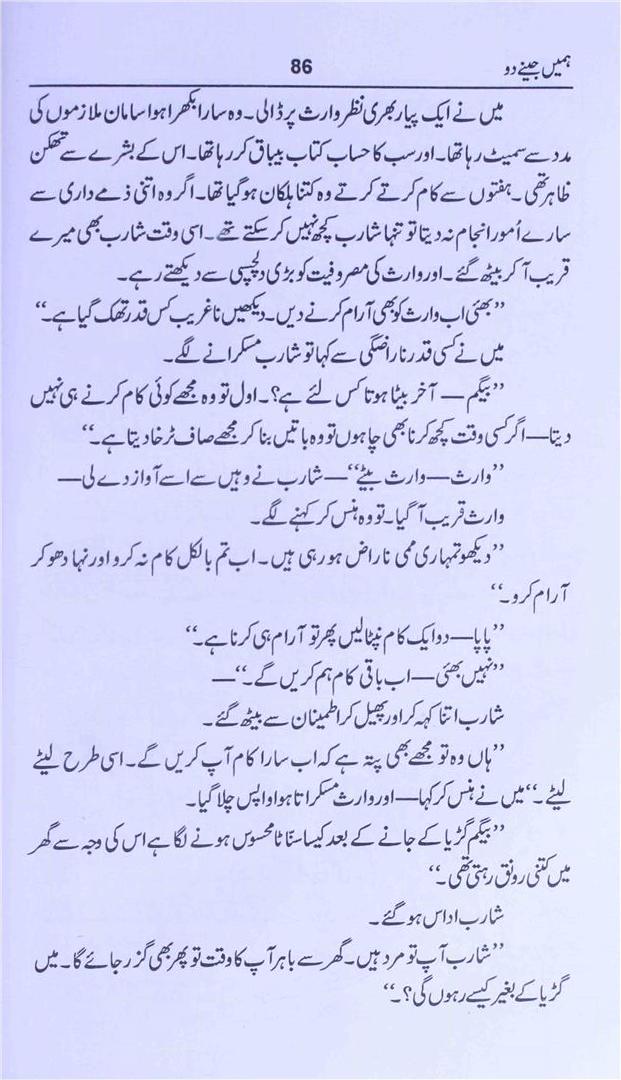 ہمیں جینے دو
86
میں نے ایک پیار بھری نظر وارث پر ڈالی۔ وہ سارا بکھرا ہوا سامان ملازموں کی
مدد سے سمیٹ رہا تھا۔ اور سب کا حساب کتاب بیباق کر رہا تھا۔ اس کے بشرے سے تھکن
ظاہر تھی۔ ہفتوں سے کام کرتے کرتے وہ کتنا ہلکان ہو گیا تھا۔ اگر وہ اتنی ذمے داری سے
سارے اُمور انجام نہ دیتا تو تنہا شارب کچھ نہیں کر سکتے تھے۔ اسی وقت شارب بھی میرے
قریب آ کر بیٹھ گئے۔ اور وارث کی مصروفیت کو بڑی دلچسپی سے دیکھتے رہے۔
”بھئی اب وارث کو بھی آرام کرنے دیں۔ دیکھیں نا غریب کس قدر تھک گیا ہے۔“
میں نے کسی قدر ناراضگی سے کہا تو شارب مسکرانے لگے۔
”بیگم — آخر بیٹا ہوتا کس لئے ہے؟۔ اول تو وہ مجھے کوئی کام کرنے ہی نہیں
دیتا — اگر کسی وقت کچھ کرنا بھی چاہوں تو وہ باتیں بنا کر مجھے صاف ٹرخا دیتا ہے۔“
”وارث — وارث بیٹے“ — شارب نے وہیں سے اسے آواز دے لی —
وارث قریب آ گیا۔ تو وہ ہنس کر کہنے لگے۔
”دیکھو تمہاری ممی ناراض ہو رہی ہیں۔ اب تم بالکل کام نہ کرو اور نہا دھو کر
آرام کرو۔“
”پاپا — دو ایک کام نپٹا لیں پھر تو آرام ہی کرنا ہے۔“
”نہیں بھئی — اب باقی کام ہم کریں گے۔“ —
شارب اتنا کہہ کر اور پھیل کر اطمینان سے بیٹھ گئے۔
”ہاں وہ تو مجھے بھی پتہ ہے کہ اب سارا کام آپ کریں گے۔ اسی طرح لیٹے
لیٹے۔“ میں نے ہنس کر کہا — اور وارث مسکراتا ہوا واپس چلا گیا۔
”بیگم گڑیا کے جانے کے بعد کیسا سنّاٹا محسوس ہونے لگا ہے اس کی وجہ سے گھر
میں کتنی رونق رہتی تھی۔“
شارب اداس ہو گئے۔
”شارب آپ تو مرد ہیں۔ گھر سے باہر آپ کا وقت تو پھر بھی گزر جائے گا۔ میں
گڑیا کے بغیر کیسے رہوں گی؟۔“